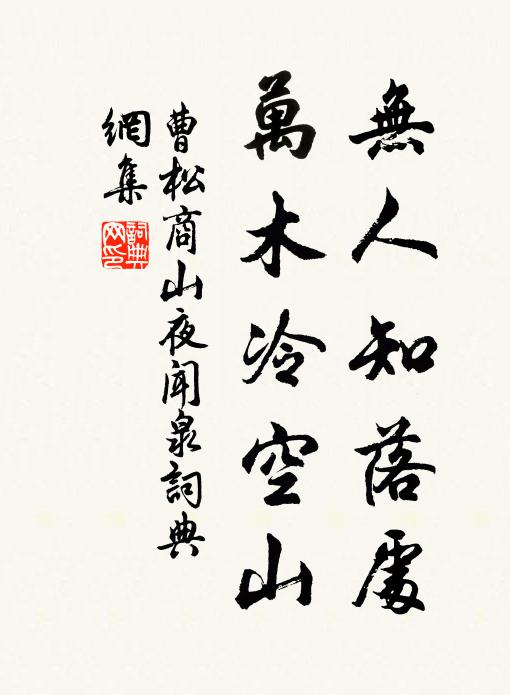 無人知落處
萬木冷空山
曹松商山夜聞泉詞典
網集
詞典
网印